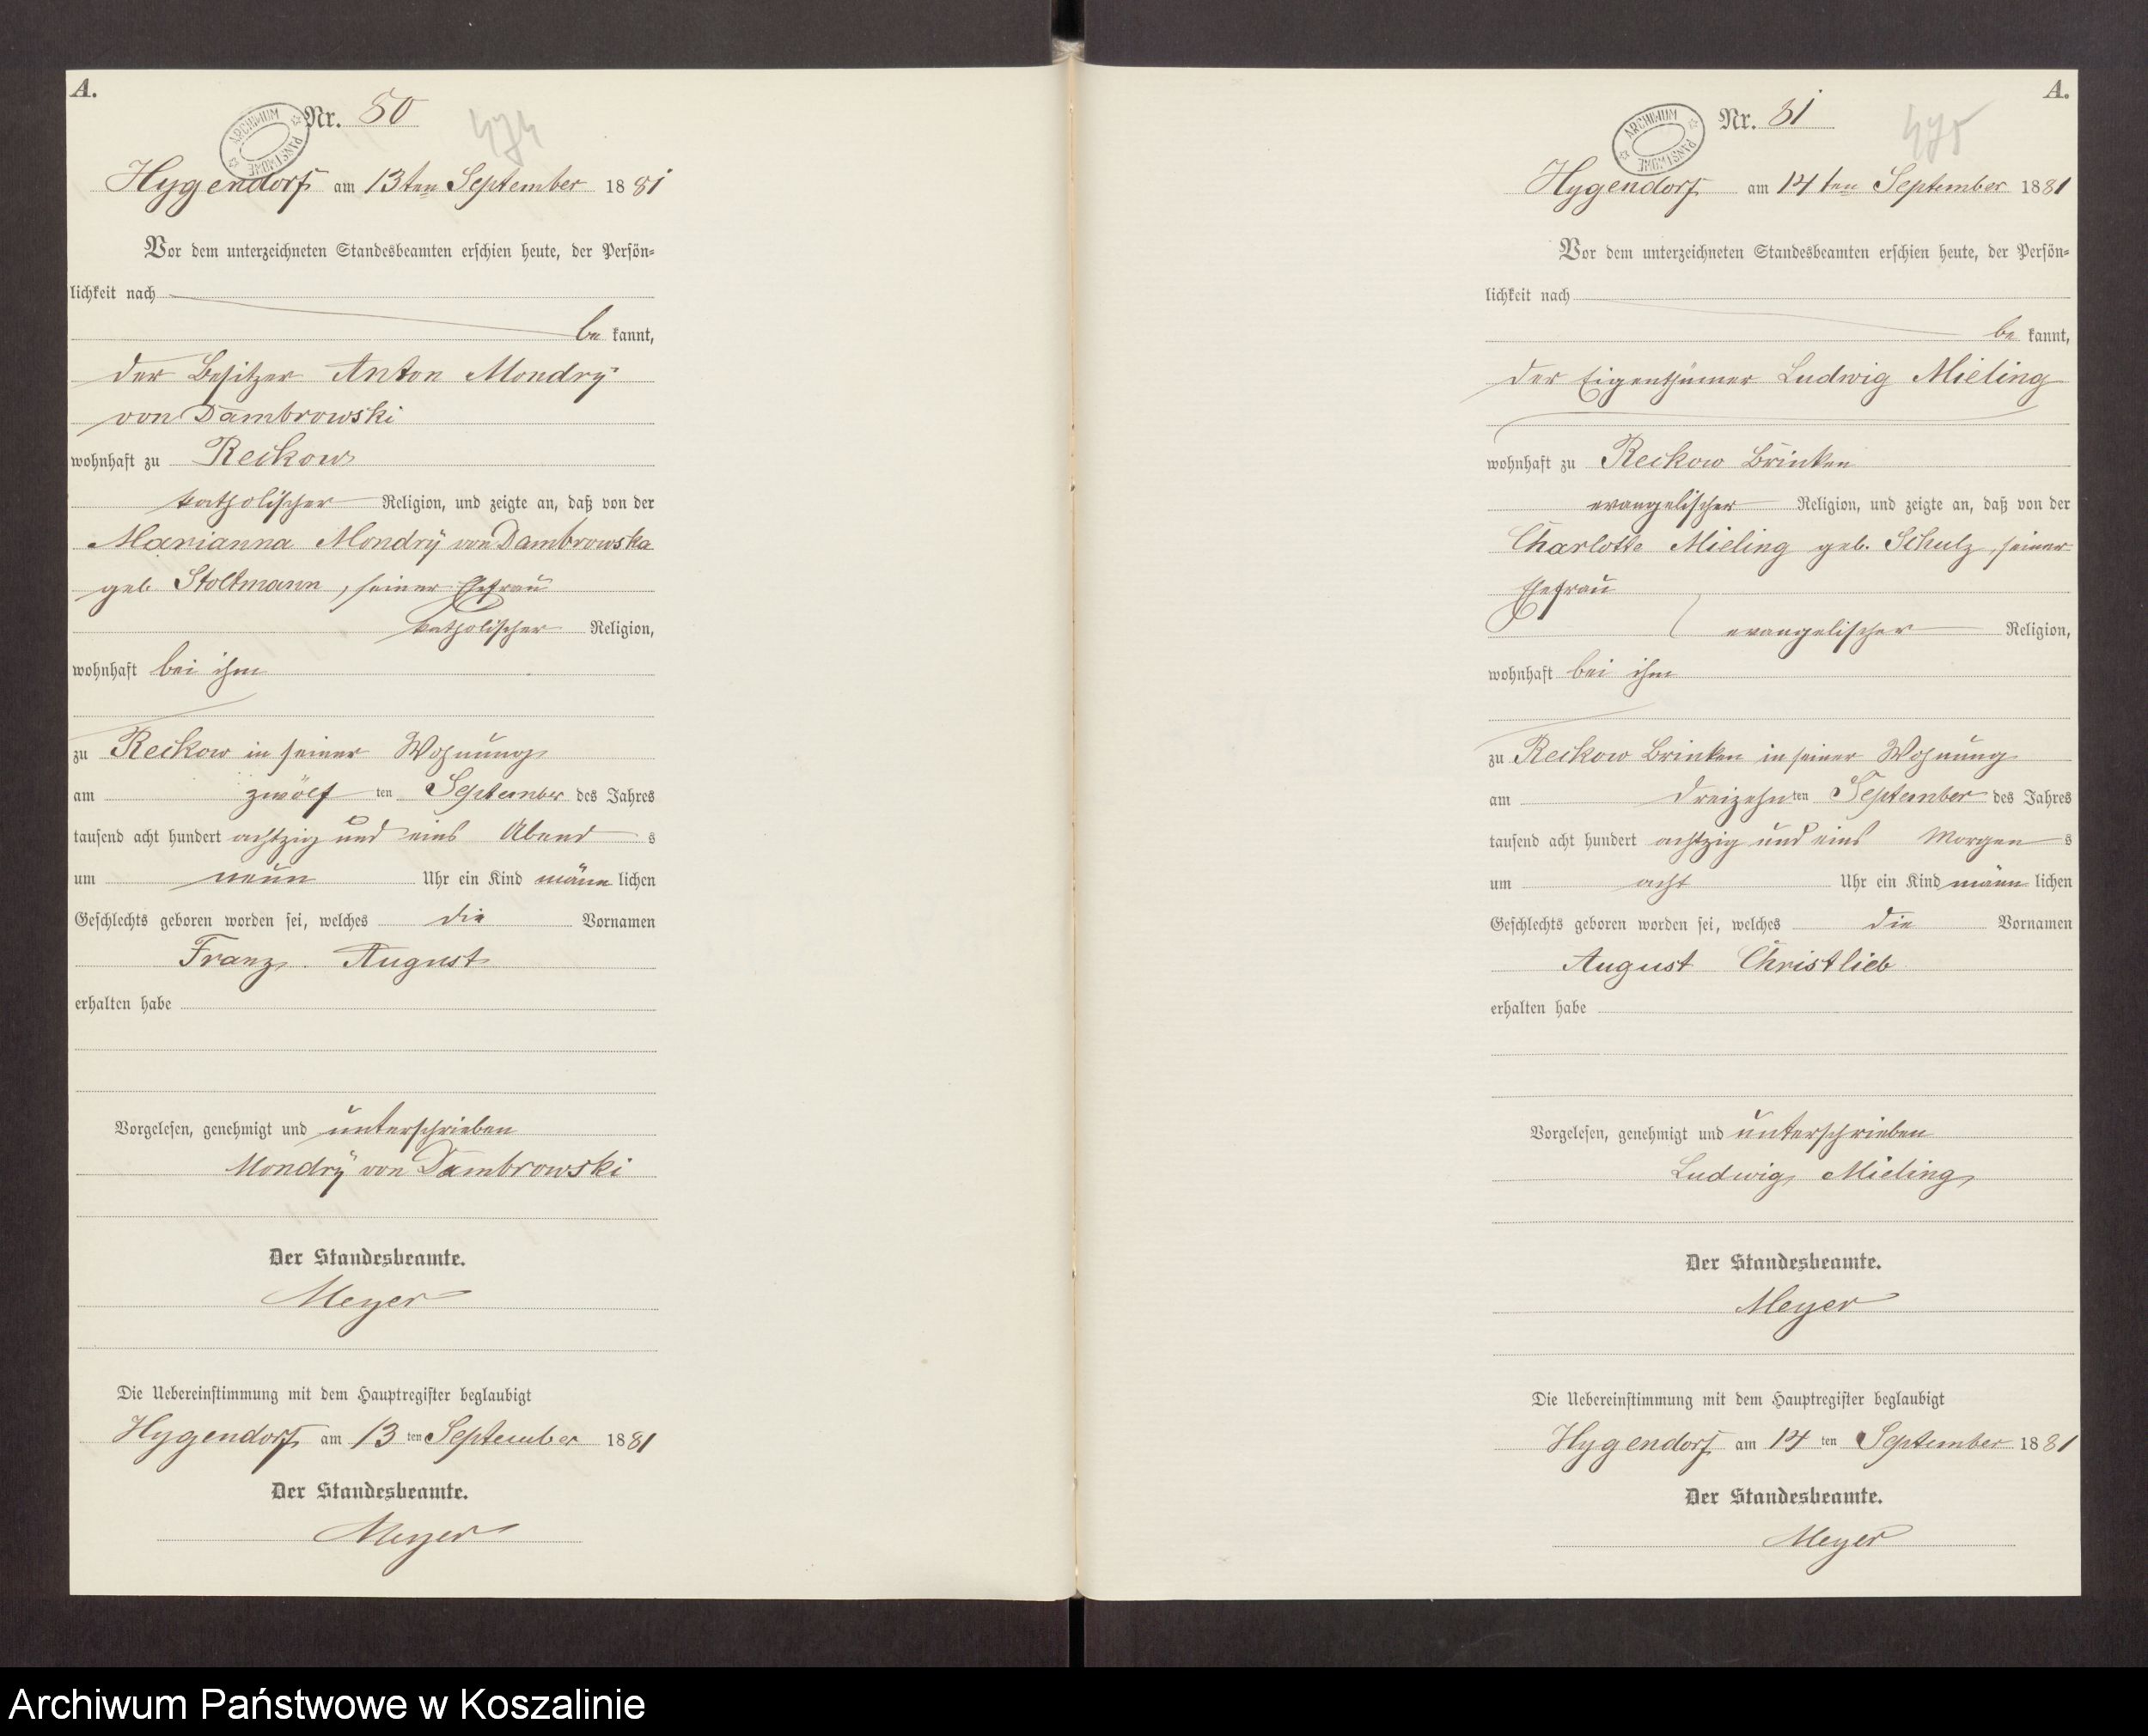 A.
Nr. 80
474
ARCHIWUM PAŃSTWOWE
Hygendorf am 13ten September 1881
Vor dem unterzeichneten Standesbeamten erschien heute, der Persön-
lichkeit nach
be kannt,
der Besitzer Anton Mondry
von Dambrowski
wohnhaft zu Reckow
katholischer Religion, und zeigte an, daß von der
Marianna Mondrÿ von Dambrowska
geb. Stoltmann, seiner Ehefrau
katholischer Religion,
wohnhaft bei ihm
zu Reckow in seiner Wohnung
am zwölf ten September des Jahres
tausend acht hundert achtzig und eins Abend s
um neun Uhr ein Kind männ lichen
Geschlechts geboren worden sei, welches die Vornamen
Franz August
erhalten habe
Vorgelesen, genehmigt und unterschrieben
Mondrÿ von Dambrowski
Der Standesbeamte.
Meyer
Die Uebereinstimmung mit dem Hauptregister beglaubigt
Hygendorf am 13 ten September 1881
Der Standesbeamte.
Meyer
A.
Nr. 81
475
ARCHIWUM PAŃSTWOWE
Hygendorf am 14ten September 1881
Vor dem unterzeichneten Standesbeamten erschien heute, der Persön-
lichkeit nach
be kannt,
der Eigenthümer Ludwig Mieling
wohnhaft zu Reckow Brinken
evangelischer Religion, und zeigte an, daß von der
Charlotte Mieling geb. Schulz, seiner
Ehefrau
evangelischer Religion,
wohnhaft bei ihm
zu Reckow Brinken in seiner Wohnung
am dreizehn ten September des Jahres
tausend acht hundert achtzig und eins Morgen s
um acht Uhr ein Kind männ lichen
Geschlechts geboren worden sei, welches die Vornamen
August Christlieb
erhalten habe
Vorgelesen, genehmigt und unterschrieben
Ludwig Mieling
Der Standesbeamte.
Meyer
Die Uebereinstimmung mit dem Hauptregister beglaubigt
Hygendorf am 14 ten September 1881
Der Standesbeamte.
Meyer
Archiwum Państwowe w Koszalinie